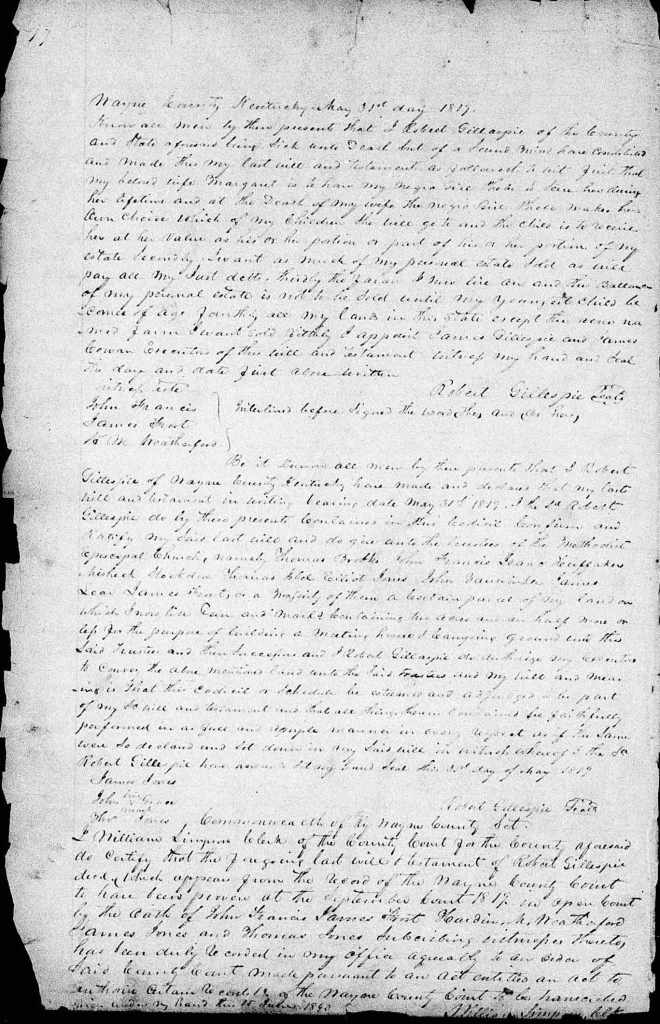 Wayne County Kentucky May 31st day 1817.
Know all men by these presents that I Robert Gillespie of the County
and State aforesaid being Sick unto Death but of a Sound Mind have Constituted
and made this my last will and testament as followeth to wit first that
my beloved wife Margaret is to have my Negro Girl to have her during
her lifetime and at the Death of my wife the negro Girl makes her
Own Choice which of my Children She will go to and the Child is to receive
her at her Value as his or her portion or part of his or her portion of my
estate Secondly I want as much of my personal estate Sold as will
pay all my Just debts. thirdly the farm I now live on and the Ballance
of my personal estate is not to be Sold until my youngest Child be
Comes of Age forthly all my lands in this State except the above na
med farm I want Sold fifthly I appoint James Gillespie and James
Cowan Executors of this will and testament witness my hand and Seal
the day and date first above written
witness teste Robert Gillespie Seal
John Francis Interlined before Signed the word and
James Frost
H. M. Weatherford
Be it known all men by these presents that I Robert
Gillespie of Wayne County Kentucky have made and declared this my last
will and testament in writing bearing date May 31st 1817. I the sd Robert
Gillespie do by these present Contained in this Codicil Confirm and
Ratify my Said last will and do give unto the trustees of the Methodist
Episcopal Church, namely Thomas John Francis Isaac
Michael Stockdon Thomas Elliot Jones John James
James Frost, or a Majority of them a Certain parcel of my land on
which I now live and Marked Containing acres and an half more or
less for the purpose of building a Meeting house & Camping ground unto the
Said Trustees and their Successors and I Robert Gillespie do authorize my Executors
to Convey the above mentioned land unto the Said trustees and my will and mean
ing is that this Codicil or Schedule be esteemed and adjudged to be part
of my Sd will and testament and that all things therein Contained be faithfully
performed in as full and ample manner in every respect as if the Same
were So declared and Set down in my Said will in witness whereof I the Sd
Robert Gillespie have Set my hand Seal this day of May 1817
James Jones
John Robert Gillespie Seal
Thos Jones, Commonwealth of Ky Wayne County Sct.
I William Simpson Clerk of the County Court for the County aforesaid
do Certify that the foregoing last will & testament of Robert Gillespie
decd, which appears from the record of the Wayne County Court
to have been proven at the September Court 1817 in open Court
by the Oath of John Francis James Frost Hardin M. Weatherford
James Jones and Thomas Jones Subscribing witnesses thereto,
has been duly recorded in my Office agreeably to an order of
Said County Court made pursuant to an act entitled an act to
authorise Certain records of the Wayne County Court to be transcribed
given under my hand this June
William Simpson Clk